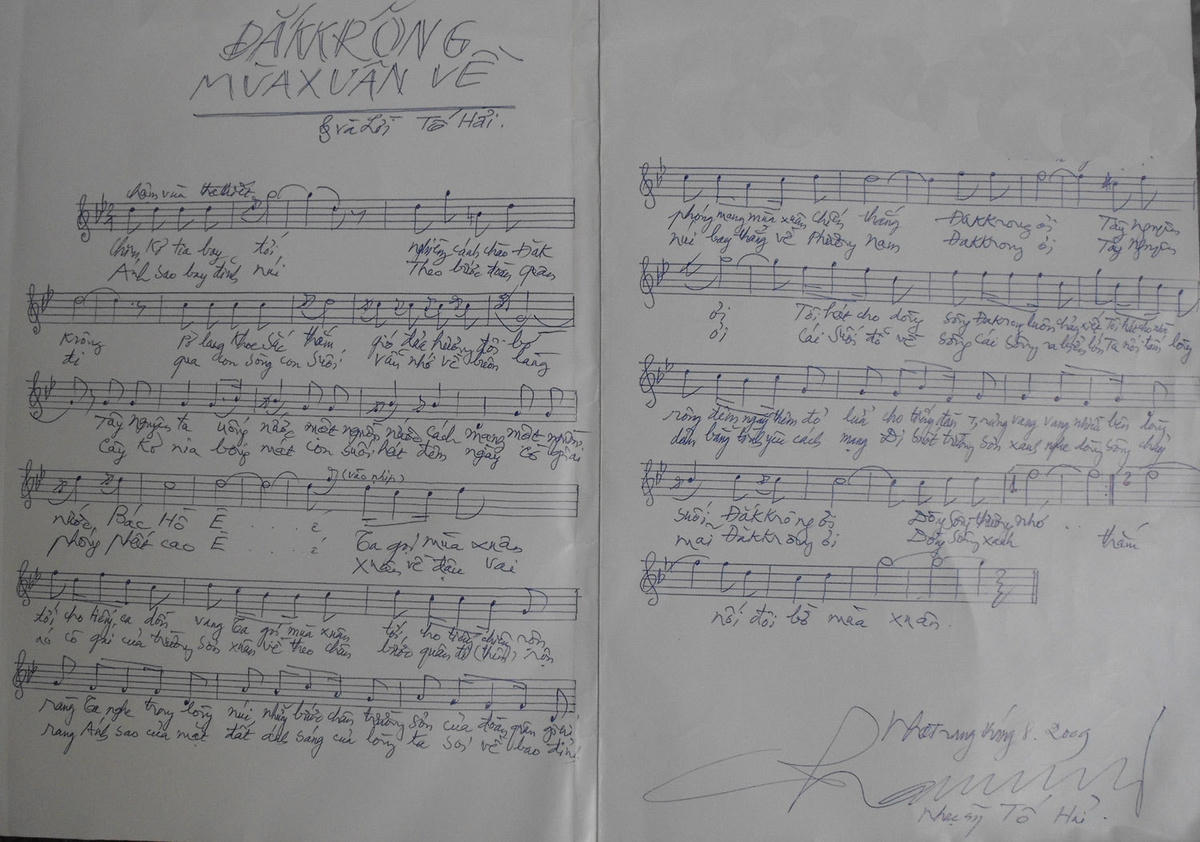 ĐĂKKRÔNG
MÙA XUÂN VỀ
và Lời Tố Hải.
chậm vừa tha thiết
Chim Kơ tia bay tới nghiêng cánh chào Đăk
Ánh sao bay đỉnh núi Theo bước đoàn quân
Krông Pơ lang khoe sắc thắm gió đưa hương đôi bờ
đi qua con sông con suối vẫn nhớ về buôn làng
Tây nguyên ta uống nước một nguồn nước cách mạng một nguồn
Cây Kơ nia bóng mát con suối hát đêm ngày cô gái
nước Bác Hồ Ê . . . . (vào nhịp)
phóng cao Ê . . . Ta gọi mùa xuân
Xuân về đậu vai
tới cho tiếng ca dồn vang Ta gọi mùa xuân tới cho rộn
áo cô gái của trường sơn xuân về theo chân bước quân đi (thêm) rộn
ràng Ta nghe trong lòng núi những bước chân trường sơn của đoàn quân giải
ràng Ánh sao của mặt đất ánh sáng của lòng ta soi về bao đỉnh
phóng mang mùa xuân chiến thắng ĐakKrong ơi Tây nguyên
núi bay thẳng về Phương nam ĐakKrong ơi Tây nguyên
ơi Tôi hát cho dòng sông Đakrong luôn chảy xiết Tôi hát cho
ơi Cái suối đổ về sông cái sông ra biển lớn Ta nối tấm lòng
rông đêm ngày thêm đỏ lửa cho tiếng đàn T'rưng vang vang nhiều bên lòng
dân bằng tình yêu cách mạng Đi suốt trường sơn xanh nghe dòng sông chảy
suối ĐăkKrông ơi Dòng sông thương nhớ . . .
mãi ĐăkKrông ơi Dòng sông xanh thắm
nối đôi bờ mùa xuân.
Nha trang tháng 8. 2009
Nhạc sỹ Tố Hải.